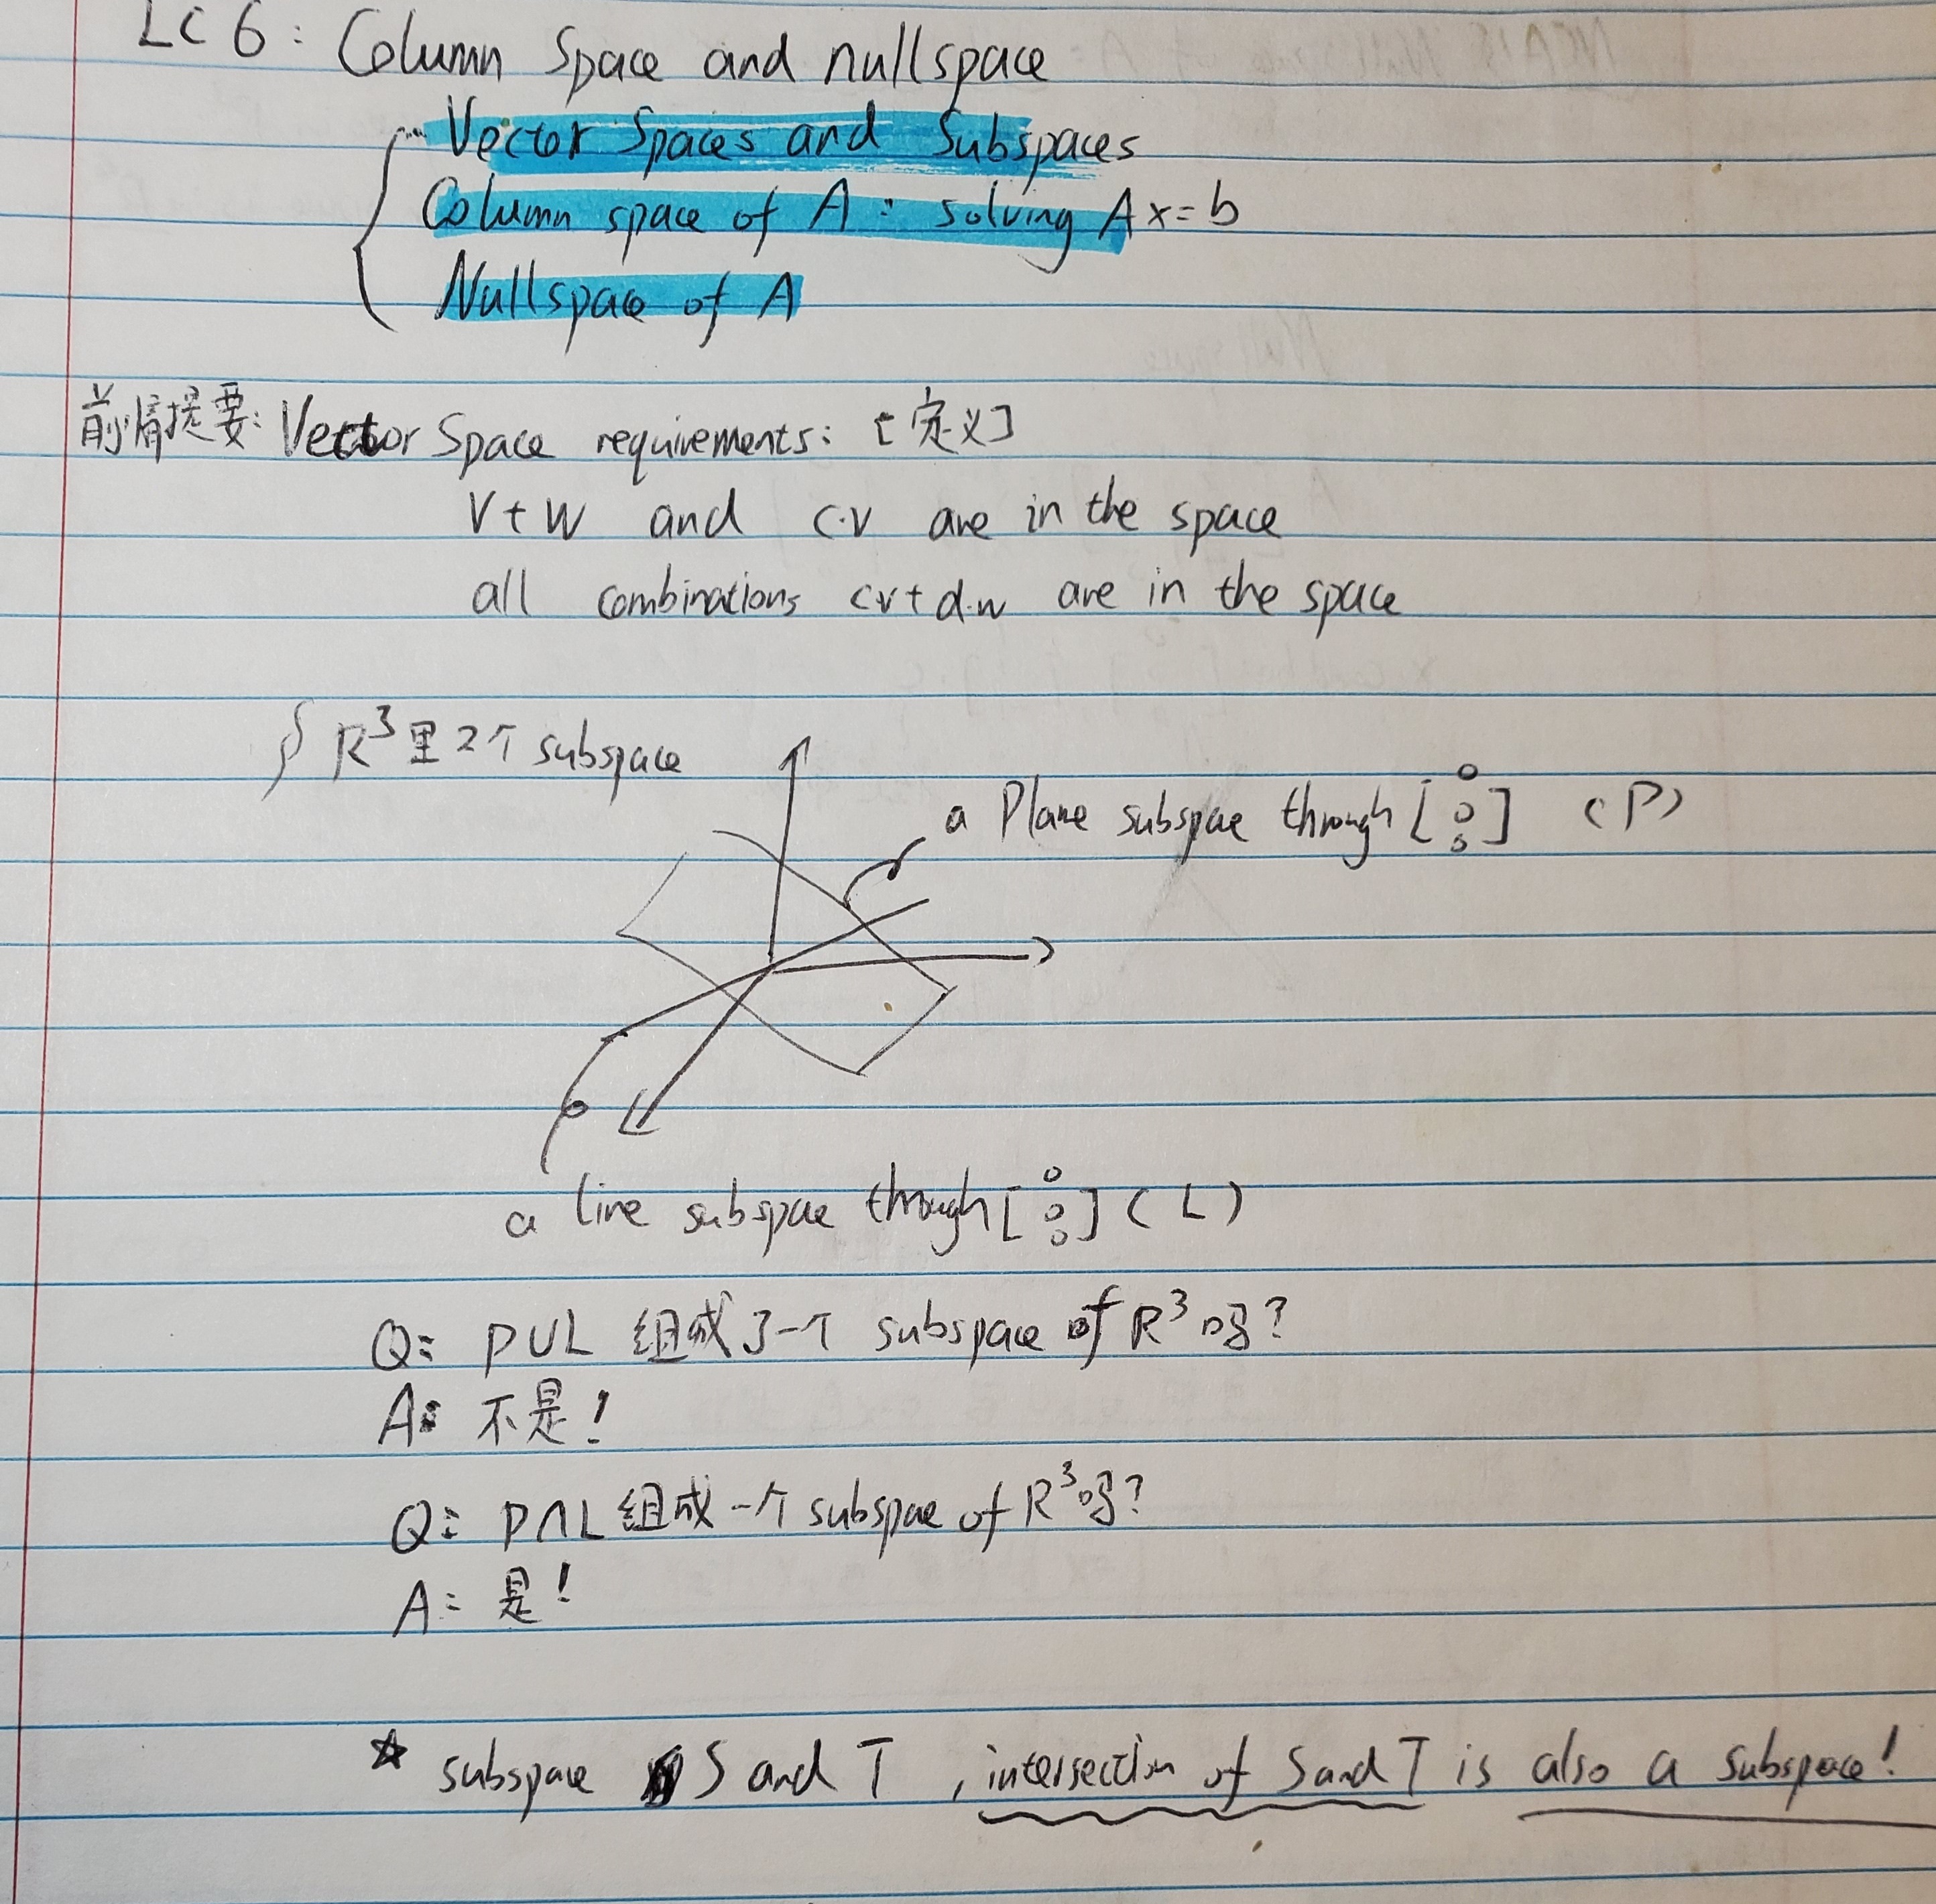 LC 6: Column Space and nullspace
Vector Spaces and Subspaces
Column space of A: solving Ax=b
Nullspace of A
前情提要: Vector Space requirements: [定义]
V+W and c·v are in the space
all combinations cv+d·w are in the space
R³里2个subspace
a Plane subspae through [0 0 0] (P)
a line subspae through [0 0 0] (L)
Q: P∪L 组成了一个 subspace of R³吗?
A: 不是!
Q: P∩L 组成一个 subspae of R³吗?
A: 是!
☆ subspae S and T, intersection of S and T is also a subspace!